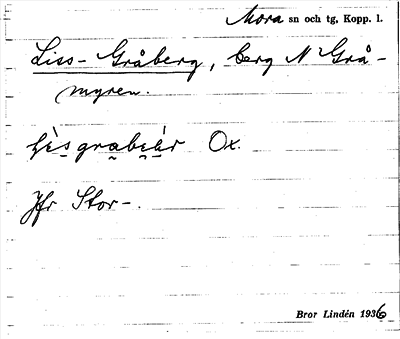 Mora sn och tg, Kopp. l.
Liss-Gråberg, berg N Grå-
myren.
Ox.
Jfr Stor-.
Bror Lindén 1936